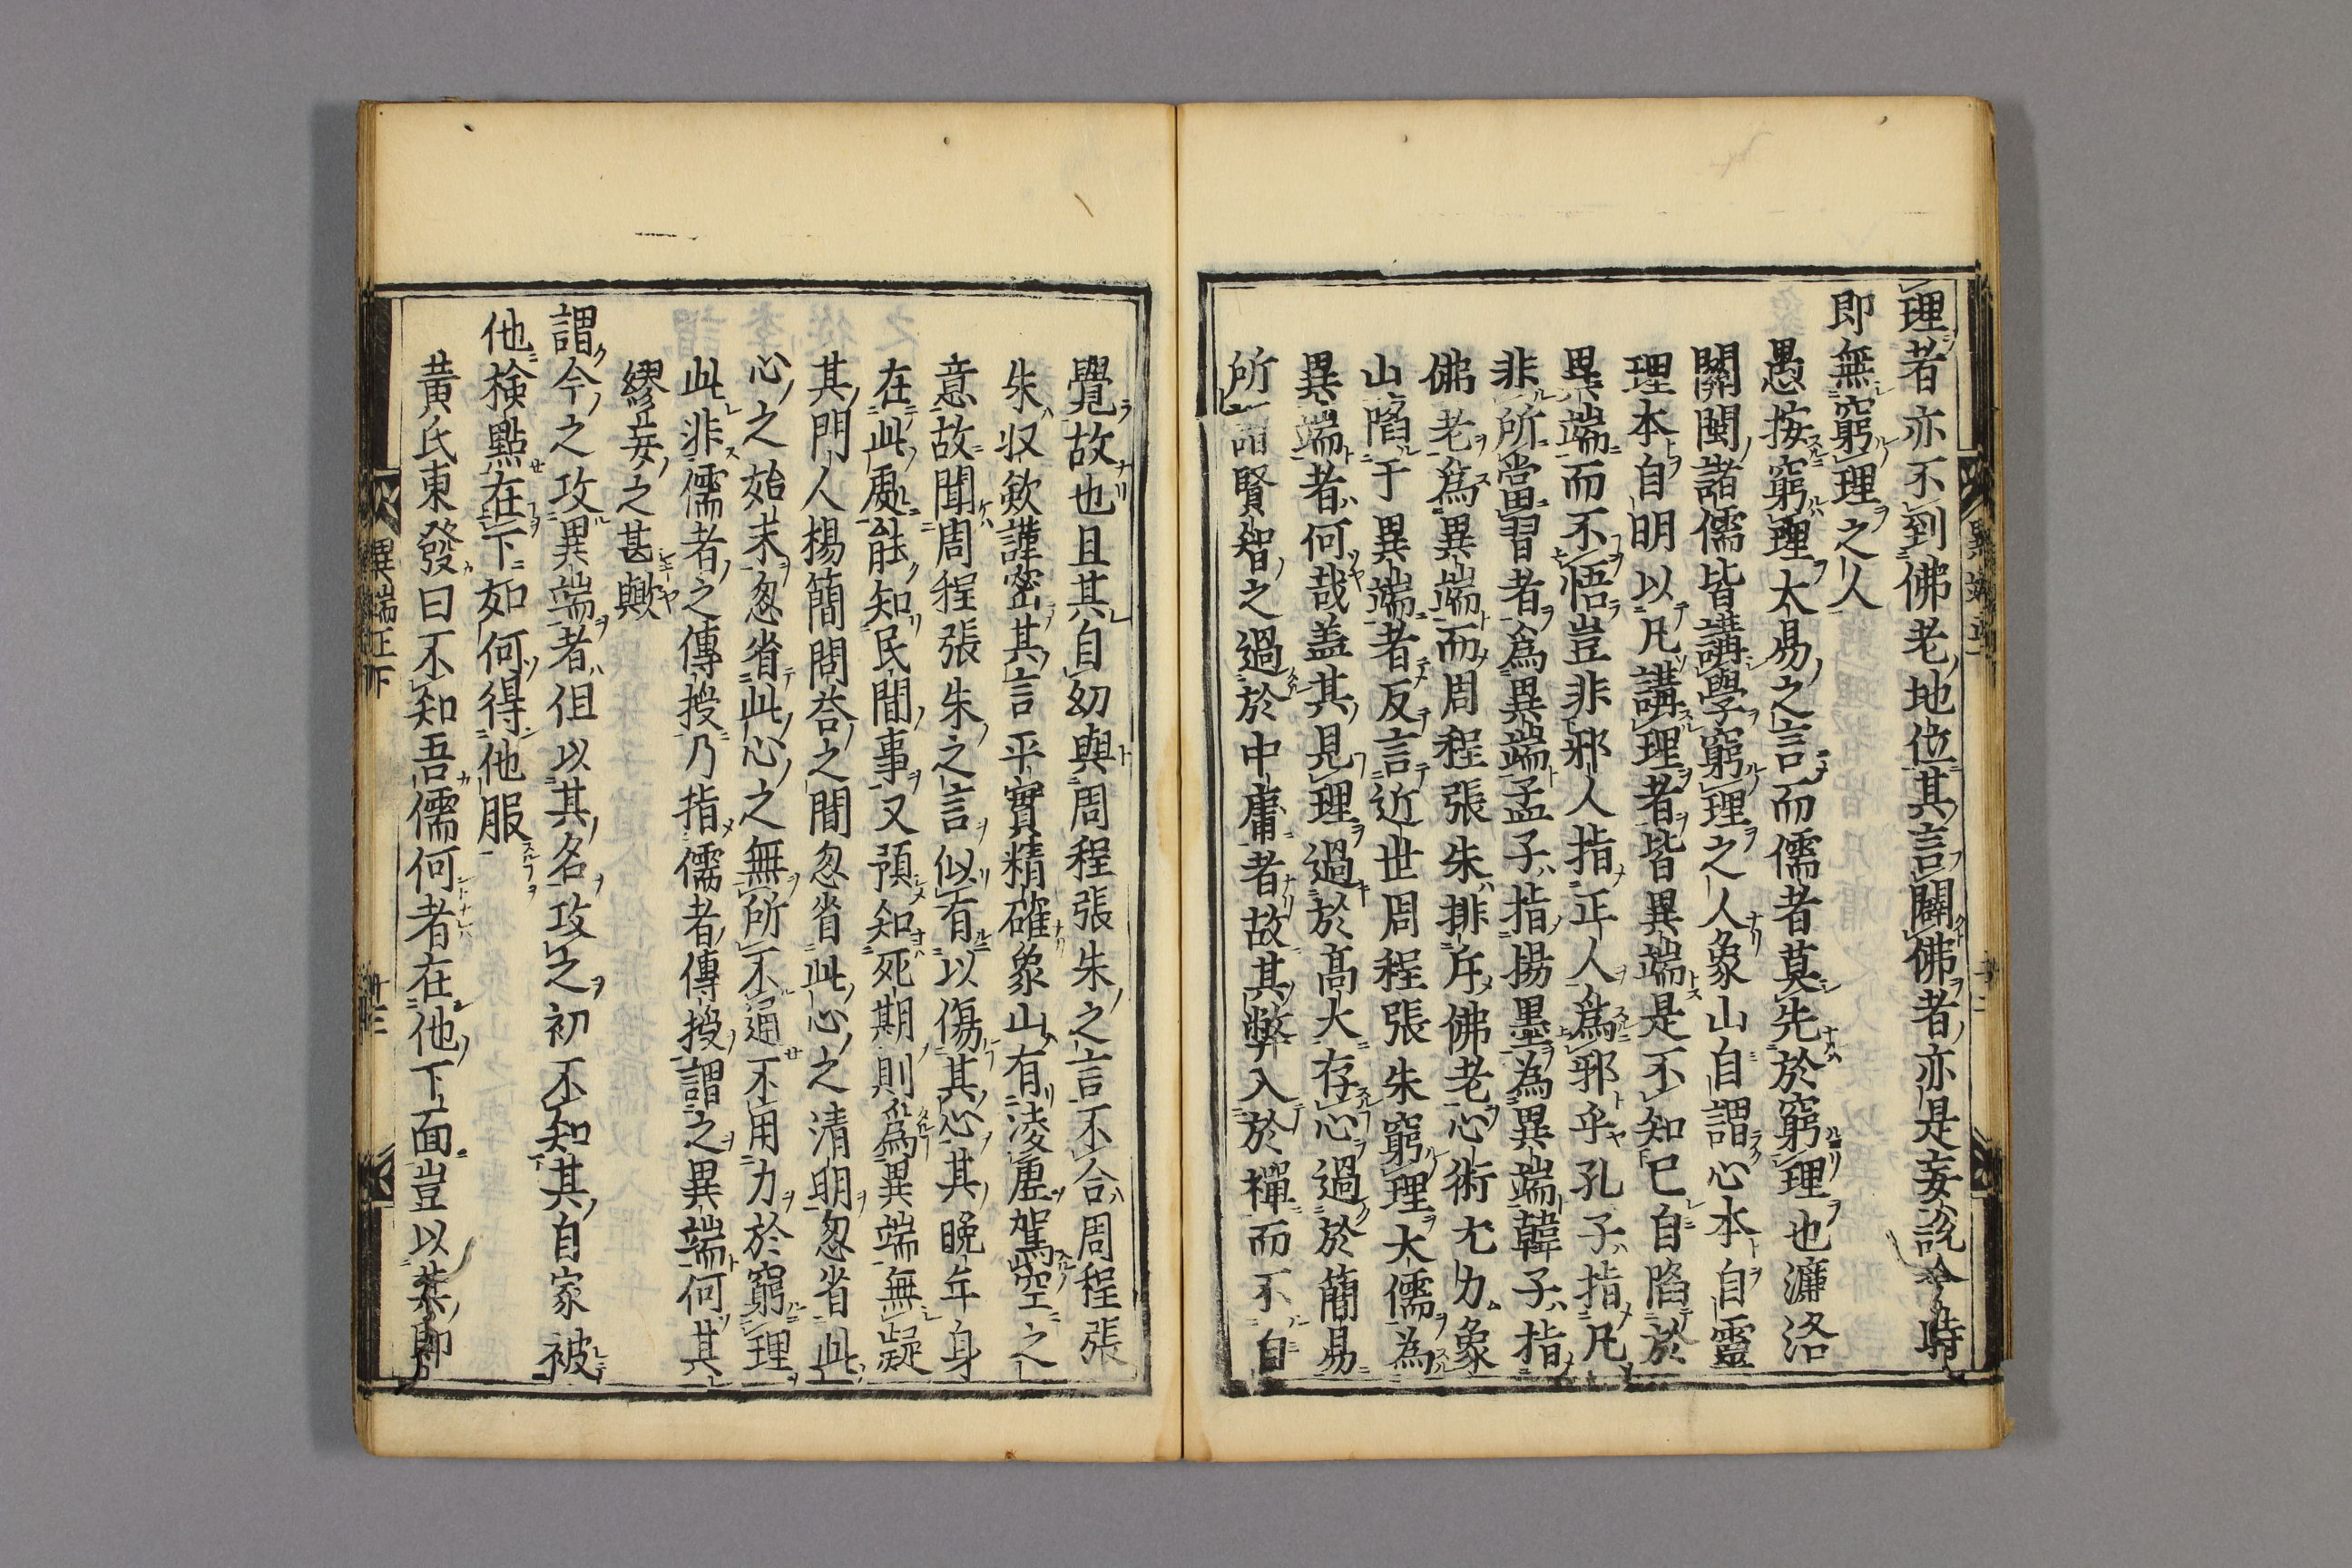 理者亦不到佛老地位其言闢佛者亦是妄説今時
即無窮理之人
愚按窮理大易之言而儒者莫先於窮理也濂洛
關閩諸儒皆講學窮理之人象山自謂心本自靈
理本自明以凡講理者皆異端是不知已自陷於
異端而不悟豈非邪人指正人爲邪乎孔子指凡
非所當習者爲異端孟子指揚墨為異端韓子指
佛老爲異端而周程張朱排斥佛老心術尤力象
山陷于異端者反言近世周程張朱窮理大儒為
異端者何哉盖其見理過於高大存心過於簡易
所謂賢智之過於中庸者故其弊入於禪而不自
覺故也且其自幼與周程張朱之言不合周程張
朱収歛謹密其言平實精確象山有凌虛駕空之
意故聞周程張朱之言似有以傷其心其晚年身
在此處能知民間事又預知死期則爲異端無疑
其門人楊簡問荅之間忽省此心之清明忽省此
心之始末忽省此心之無所不通不用力於窮理
此非儒者之傳授乃指儒者傳授謂之異端何其
繆妄之甚歟
謂今之攻異端者但以其名攻之初不知其自家被
他檢點在下如何得他服
黄氏東發曰不知吾儒何者在他下面豈以葉即
異端正下
卅三